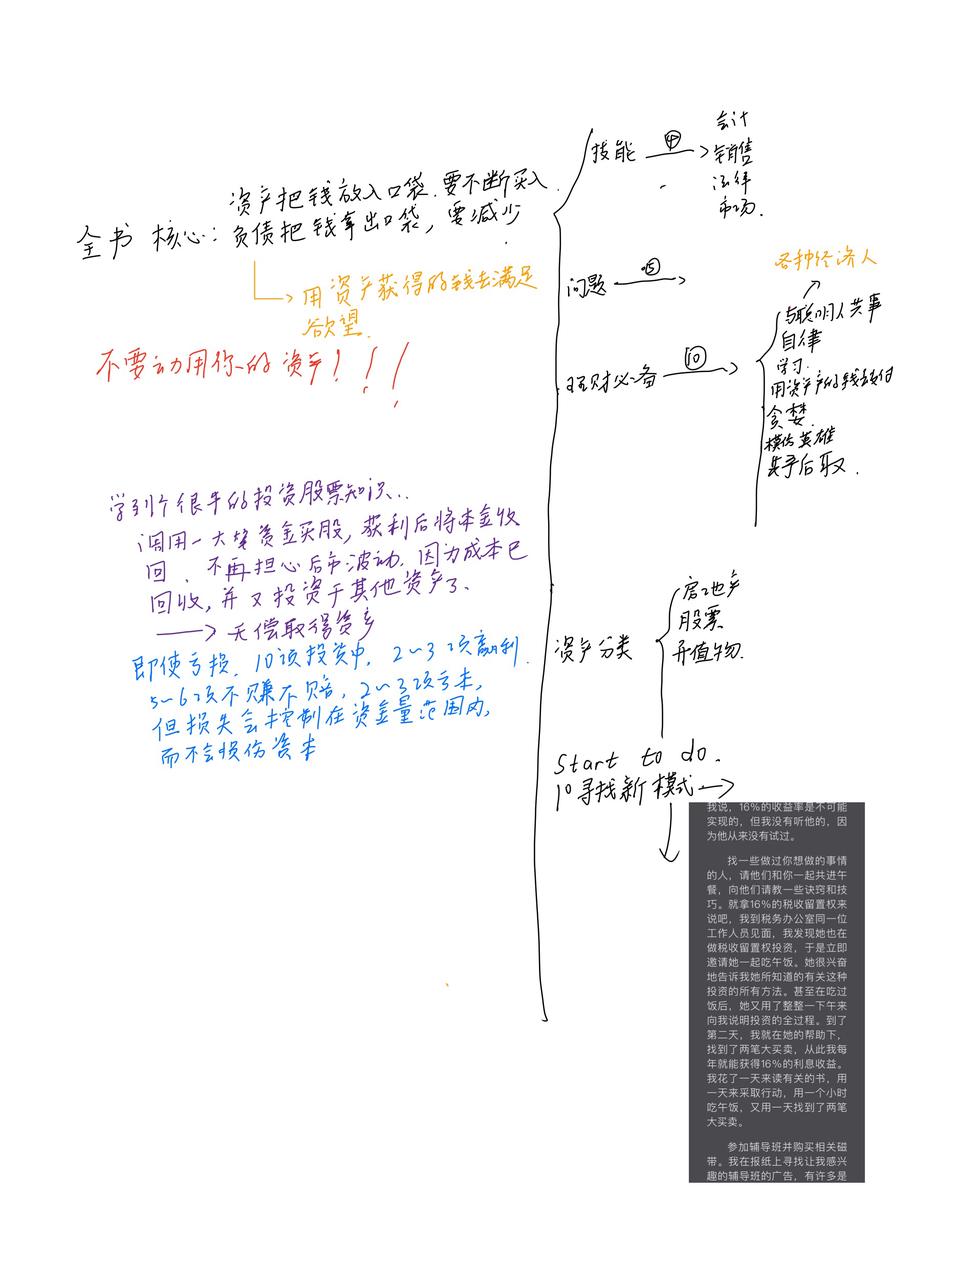 资产把钱放入口袋.要不断买入
全书 核心：负债把钱拿出口袋，要减少.
用资产获得的钱去满足
欲望.
不要动用你的资产！！！
学到个很牛的投资股票知识...
调用一大笔资金买股，获利后将本金收
回、不再担心后市波动.因为成本已
回收，并又投资于其他资产了、
无偿取得资产
即使亏损、10项投资中，2～3项赢利.
5～6项不赚不赔，2～3项亏本，
但损失会控制在资金量范围内，
而不会损伤资本
技能 ④
会计
销售
法律
市场.
问题 ⑤
各种经济人
理财必备 ⑩
与聪明人共事
自律
学习.
用资产的钱支付
贪婪.
模仿英雄
先予后取.
资产分类
房地产
股票
升值物.
Start to do.
1° 寻找新模式
我说，16%的收益率是不可能
实现的，但我没有听他的，因
为他从来没有试过。
找一些做过你想做的事情
的人，请他们和你一起共进午
餐，向他们请教一些诀窍和技
巧。就拿16%的税收留置权来
说吧，我到税务办公室同一位
工作人员见面，我发现她也在
做税收留置权投资，于是立即
邀请她一起吃午饭。她很兴奋
地告诉我她所知道的有关这种
投资的所有方法。甚至在吃过
饭后，她又用了整整一下午来
向我说明投资的全过程。到了
第二天，我就在她的帮助下，
找到了两笔大买卖，从此我每
年就能获得16%的利息收益。
我花了一天来读有关的书，用
一天来采取行动，用一个小时
吃午饭，又用一天找到了两笔
大买卖。
参加辅导班并购买相关磁
带。我在报纸上寻找让我感兴
趣的辅导班的广告，有许多是